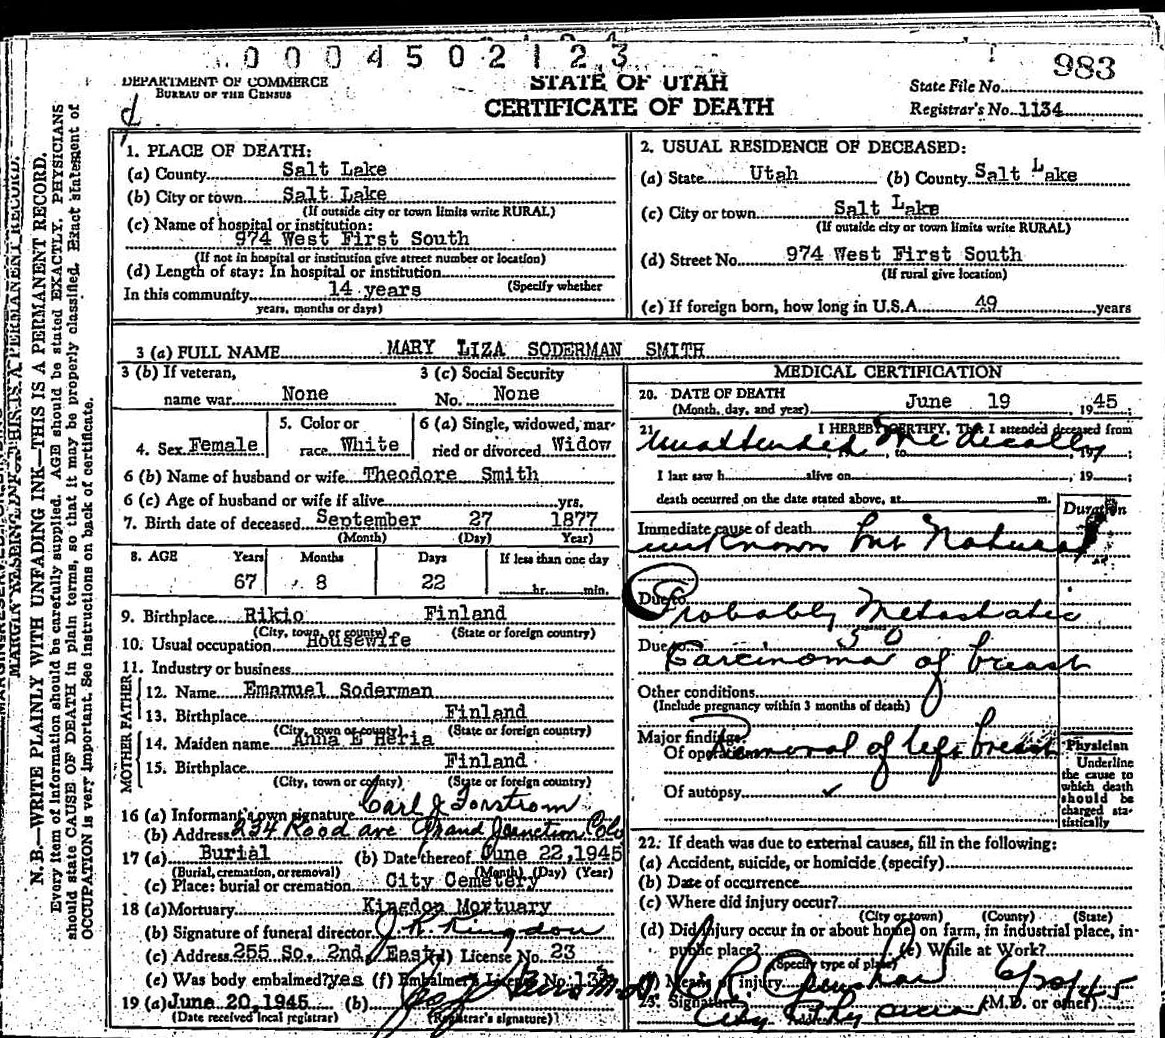 0004502123
983
DEPARTMENT OF COMMERCE
BUREAU OF THE CENSUS
STATE OF UTAH
CERTIFICATE OF DEATH
State File No.
Registrar's No. 1134
N. B.—WRITE PLAINLY WITH UNFADING INK—THIS IS A PERMANENT RECORD.
Every item of information should be carefully supplied. AGE should be stated EXACTLY. PHYSICIANS
should state CAUSE OF DEATH in plain terms, so that it may be properly classified. Exact statement of
OCCUPATION is very important. See instructions on back of certificate.
1. PLACE OF DEATH:
(a) County Salt Lake
(b) City or town Salt Lake
(If outside city or town limits write RURAL)
(c) Name of hospital or institution:
974 West First South
(If not in hospital or institution give street number or location)
(d) Length of stay: In hospital or institution
(Specify whether
In this community 14 years
years, months or days)
2. USUAL RESIDENCE OF DECEASED:
(a) State Utah (b) County Salt Lake
(c) City or town Salt Lake
(If outside city or town limits write RURAL)
(d) Street No. 974 West First South
(If rural give location)
(e) If foreign born, how long in U.S.A. 49 years
3 (a) FULL NAME MARY LIZA SODERMAN SMITH
3 (b) If veteran, 3 (c) Social Security
name war None No. None
4. Sex Female 5. Color or race White 6 (a) Single, widowed, married or divorced Widow
6 (b) Name of husband or wife Theodore Smith
6 (c) Age of husband or wife if alive yrs.
7. Birth date of deceased September 27 1877
(Month) (Day) Year)
8. AGE Years Months Days If less than one day
67 8 22 hr. min.
9. Birthplace Rikio Finland
(City, town, or county) (State or foreign country)
10. Usual occupation Housewife
11. Industry or business
FATHER
12. Name Emanuel Soderman
13. Birthplace Finland
(City, town or county) (State or foreign country)
MOTHER
14. Maiden name Anna E Heria
15. Birthplace Finland
(City, town or county) (State or foreign country)
16 (a) Informant's own signature Carl J Forstrom
(b) Address 234 Rood ave Grand Junction Colo
17 (a) Burial (b) Date thereof June 22, 1945
(Burial, cremation, or removal) (Month) (Day) (Year)
(c) Place: burial or cremation City Cemetery
18 (a) Mortuary Kingdon Mortuary
(b) Signature of funeral director J. R. Kingdon
(c) Address 255 So. 2nd East (d) License No. 23
(e) Was body embalmed? yes (f) Embalmer's License No.
19 (a) June 20, 1945 (b)
(Date received local registrar) (Registrar's signature)
MEDICAL CERTIFICATION
20. DATE OF DEATH
(Month, day, and year) June 19 , 1945;
21. I HEREBY CERTIFY, That I attended deceased from
Unattended Medically to , 19 ;
I last saw h alive on , 19 ;
death occurred on the date stated above, at m.
Duration
Immediate cause of death
unknown but Natural
Due to
Probably Metastatic
50
Due to
Carcinoma of breast
Other conditions
(Include pregnancy within 3 months of death)
Major findings:
Of operations Removal of left breast
Of autopsy ✓
Physician
Underline
the cause to
which death
should be
charged sta-
tistically
22. If death was due to external causes, fill in the following:
(a) Accident, suicide, or homicide (specify)
(b) Date of occurrence
(c) Where did injury occur?
(City or town) (County) (State)
(d) Did injury occur in or about home, on farm, in industrial place, in-
public place? (e) While at Work?
(Specify type of place)
Means of injury
6/20/45
23. Signature (M.D. or other)
City Physician
Address